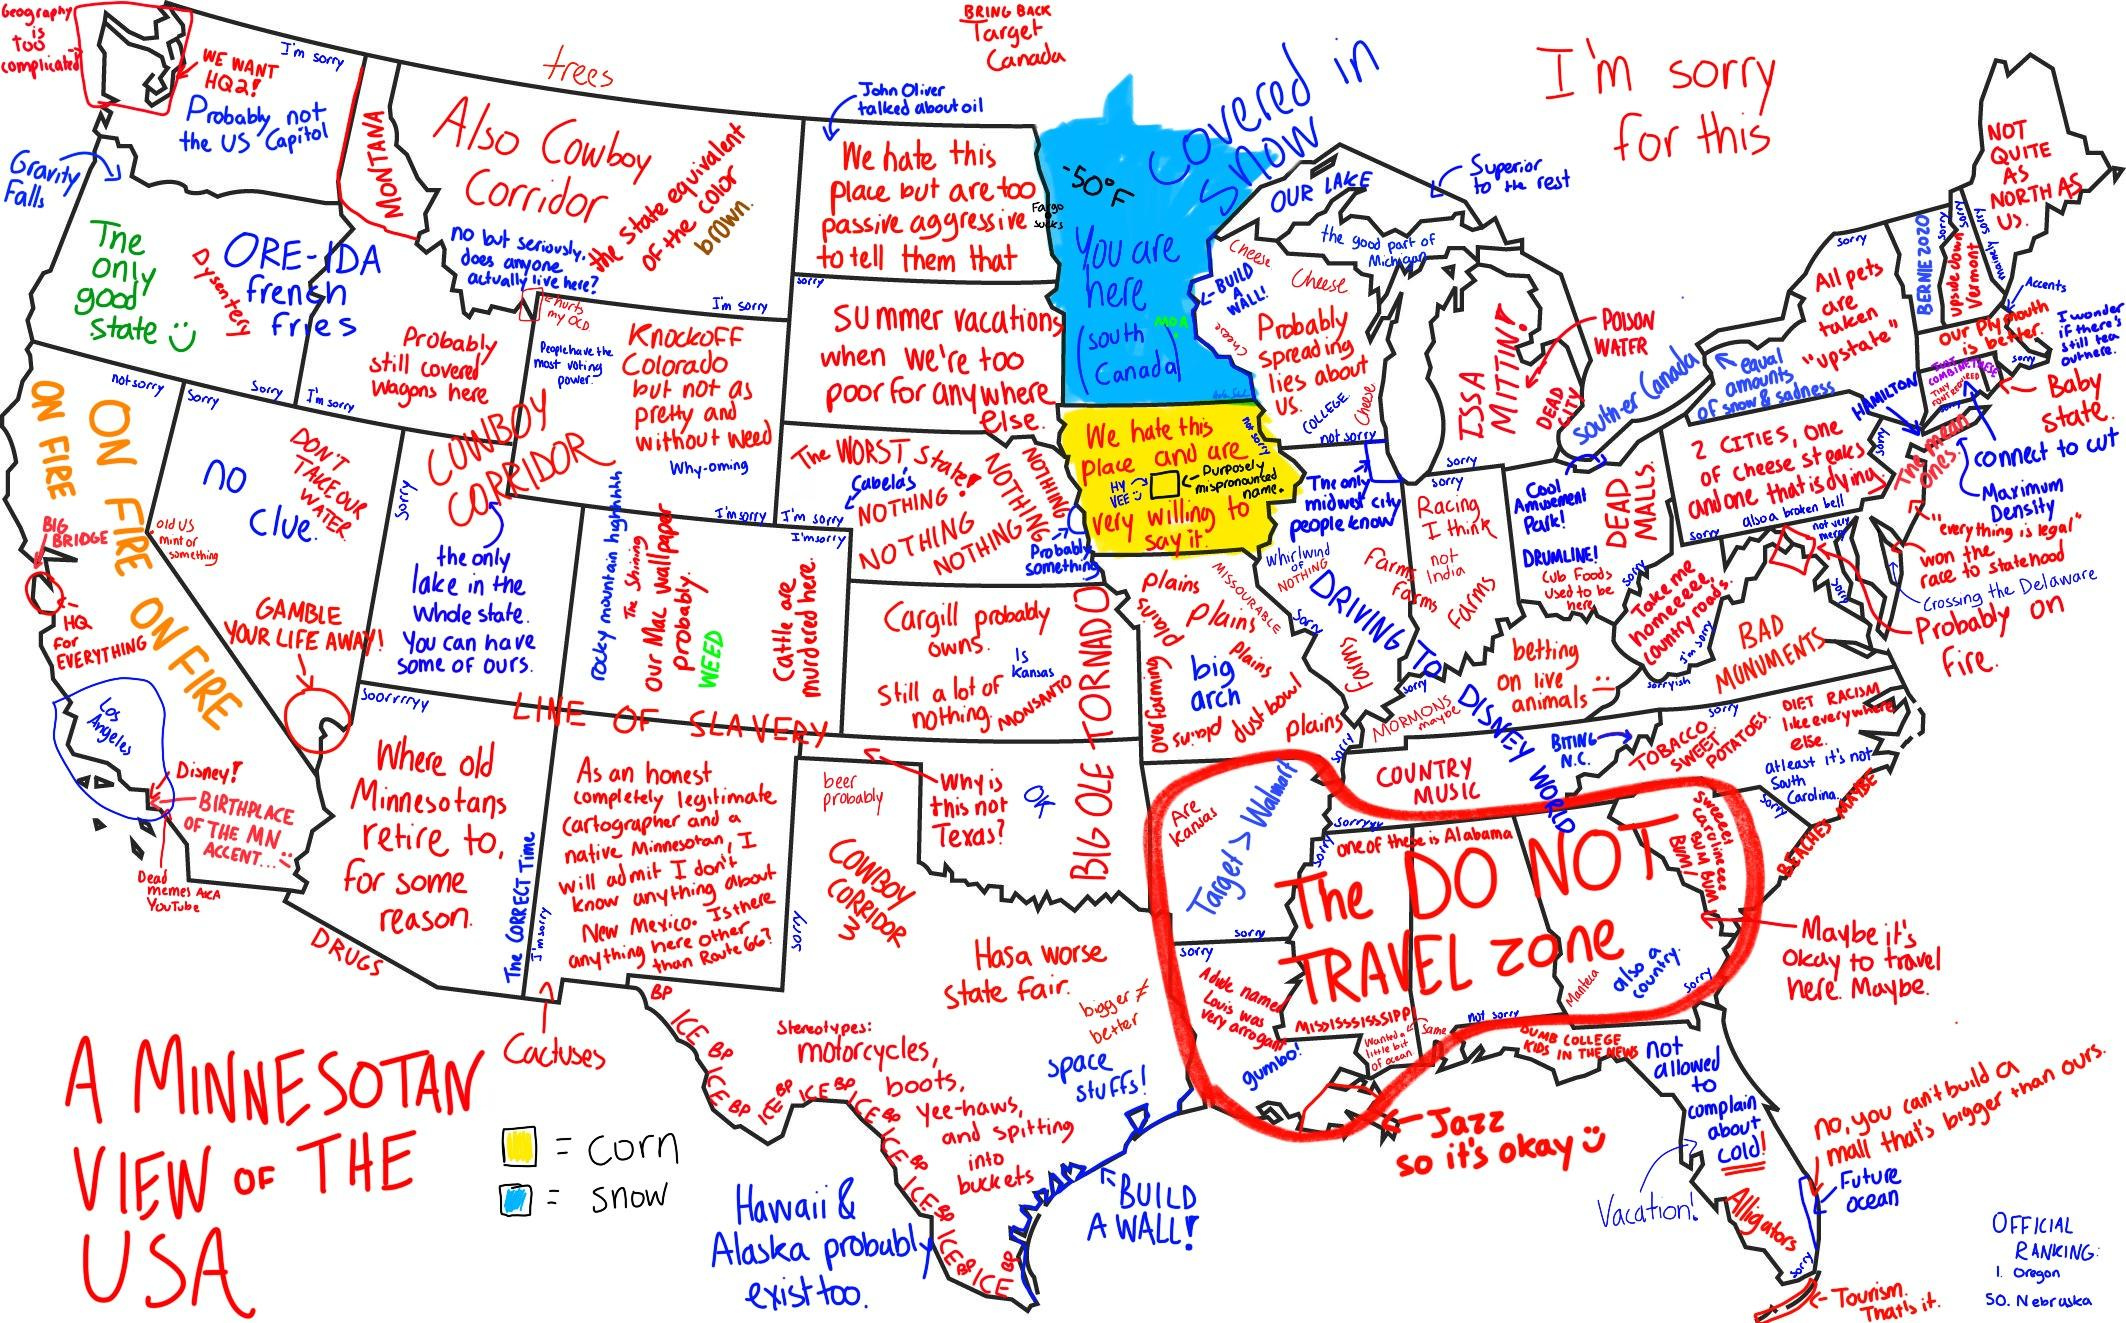 Geography
is
Too
complicated
WE WANT
HQ2!
I'm sorry
Probably not
the US Capitol
MONTANA
trees
Also Cowboy
Corridor
the state equivalent
of the color
brown.
no but seriously,
does anyone
actually live here?
I'm sorry
hurts
my OCD
BRING BACK
Target
Canada
John Oliver
talked about oil
We hate this
place but are too
passive aggressive
to tell them that
Fargo
sucks
-50°F
You are
here
(south
Canada)
MOA
Covered in
snow
I'm sorry
for this
Superior
to the rest
OUR LAKE
the good part of
Michigan
Gravity
Falls
The
only
good
state
Dysentery
ORE-IDA
french
fries
not sorry
sorry
sorry
I'm sorry
Probably
still covered
wagons here
COWBOY
CORRIDOR
People have the
most voting
power.
Knockoff
Colorado
but not as
pretty and
without weed
Why-oming
I'm sorry
sorry
Summer vacations
when we're too
poor for anywhere
else.
The WORST state!
Cabela's
NOTHING
NOTHING
NOTHING
NOTHING
NOTHING
I'm sorry
Probably
something
We hate this
place and are
HY
VEE
Purposely
mispronounced
name.
very willing to
say it.
not sorry
Cheese
BUILD
A
WALL!
Cheese
Cheese
Probably
spreading
lies about
us.
COLLEGE.
Cheese
not sorry
ISSA
MITTIN!
POISON
WATER
DEAD
CITY
sorry
The only
midwest city
people know
Whirlwind
of
NOTHING
sorry
Racing
I think
not
India
Farms
Farms
Farms
Farms
sorry
Cool
Amusement
Park!
DRUMLINE!
Cub Foods
used to be
here
DEAD
MALLS.
sorry
souther Canada
equal
amounts
of snow & sadness
sorry
All pets
are
taken
"upstate"
BERNIE 2020
sorry
upside down
Vermont
sorry
sorry
mainely
NOT
QUITE
AS
NORTH AS
US.
Accents
our Plymouth
is better.
I wonder
if there's
still tea
out here.
sorry
JUST
COMBINE THESE
TINY
FONT REQUIRED
sorry
Baby
state.
connect to cut
HAMILTON
The mean
ones.
Maximum
Density
2 CITIES, one
of cheese steaks
and one that is dying
also a broken bell
sorry
sorry
not very
merry
"everything is legal"
won the
race to statehood
Crossing the Delaware
Probably on
fire.
sorry
Take me
homeeeee,
country roads.
I'm sorry
BAD
MUNUMENTS
sorryish
betting
on live
animals
sorry
MORMONS
maybe
DRIVING TO DISNEY WORLD
ON FIRE
ON FIRE
ON FIRE
BIG
BRIDGE
HQ
for
EVERYTHING
Los
Angeles
Disney!
BIRTHPLACE
OF THE MN
ACCENT...
Dead
memes AKA
YouTube
no
clue.
DON'T
TAKE OUR
WATER
old US
mint or
something
GAMBLE
YOUR LIFE AWAY!
sorry
the only
lake in the
whole state.
You can have
some of ours.
soorrrryy
rocky mountain highhhhh
The Shining
our Mac wallpaper
probably.
WEED
Cattle are
murdered here.
I'm sorry
LINE OF SLAVERY
Cargill probably
owns.
Is
Kansas
Still a lot of
nothing.
MONSANTO
BIG OLE TORNADO
plains
plains
plains
plains
overfarming
big
arch
plains
dust bowl
plains
MISSOURABLE
sorry
Where old
Minnesotans
retire to,
for some
reason.
The CORRECT Time
DRUGS
I'm sorry
As an honest
completely legitimate
cartographer and a
native Minnesotan, I
will admit I don't
know anything about
New Mexico. Is there
anything here other
than Route 66?
sorry
Cactuses
beer
probably
Why is
this not
Texas?
OK
COWBOY
CORRIDOR
3
Has a worse
state fair.
bigger ≠
better
Stereotypes:
motorcycles,
boots,
yee-haws,
and spitting
into
buckets
space
stuffs!
BP
ICE BP
ICE BP
ICE BP ICE BP
ICE BP
ICE BP
ICE BP
ICE BP
ICE BP
BUILD
A WALL!
Are
Kansas
Target > Walmart
sorry
sorry
A dude named
Louis was
very arrogant
gumbo!
COUNTRY
MUSIC
sorryyy
BITING
N.C.
one of these is Alabama
sorry
The DO NOT
TRAVEL zone
MISSISSISSSIPP
Wanted a
little bit
of ocean
Same
not sorry
Manteca
also a
country
sorry
TOBACCO.
SWEET
POTATOES.
sorry
DIET RACISM
like everywhere
else.
at least it's not
South
Carolina.
sorry
BEACHES MAYBE
Sweeeet
Carolineeee
BUM BUM
BUM!
Maybe it's
Okay to travel
here. Maybe.
Jazz
so it's okay
DUMB COLLEGE
KIDS IN THE NEWS
not
allowed
to
complain
about
cold!
Vacation!
Alligators
sorry
no, you can't build a
mall that's bigger than ours.
Future
ocean
Tourism.
That's it.
A MINNESOTAN
VIEW OF THE
USA
= corn
= snow
Hawaii &
Alaska probably
exist too.
OFFICIAL
RANKING:
1. Oregon
50. Nebraska